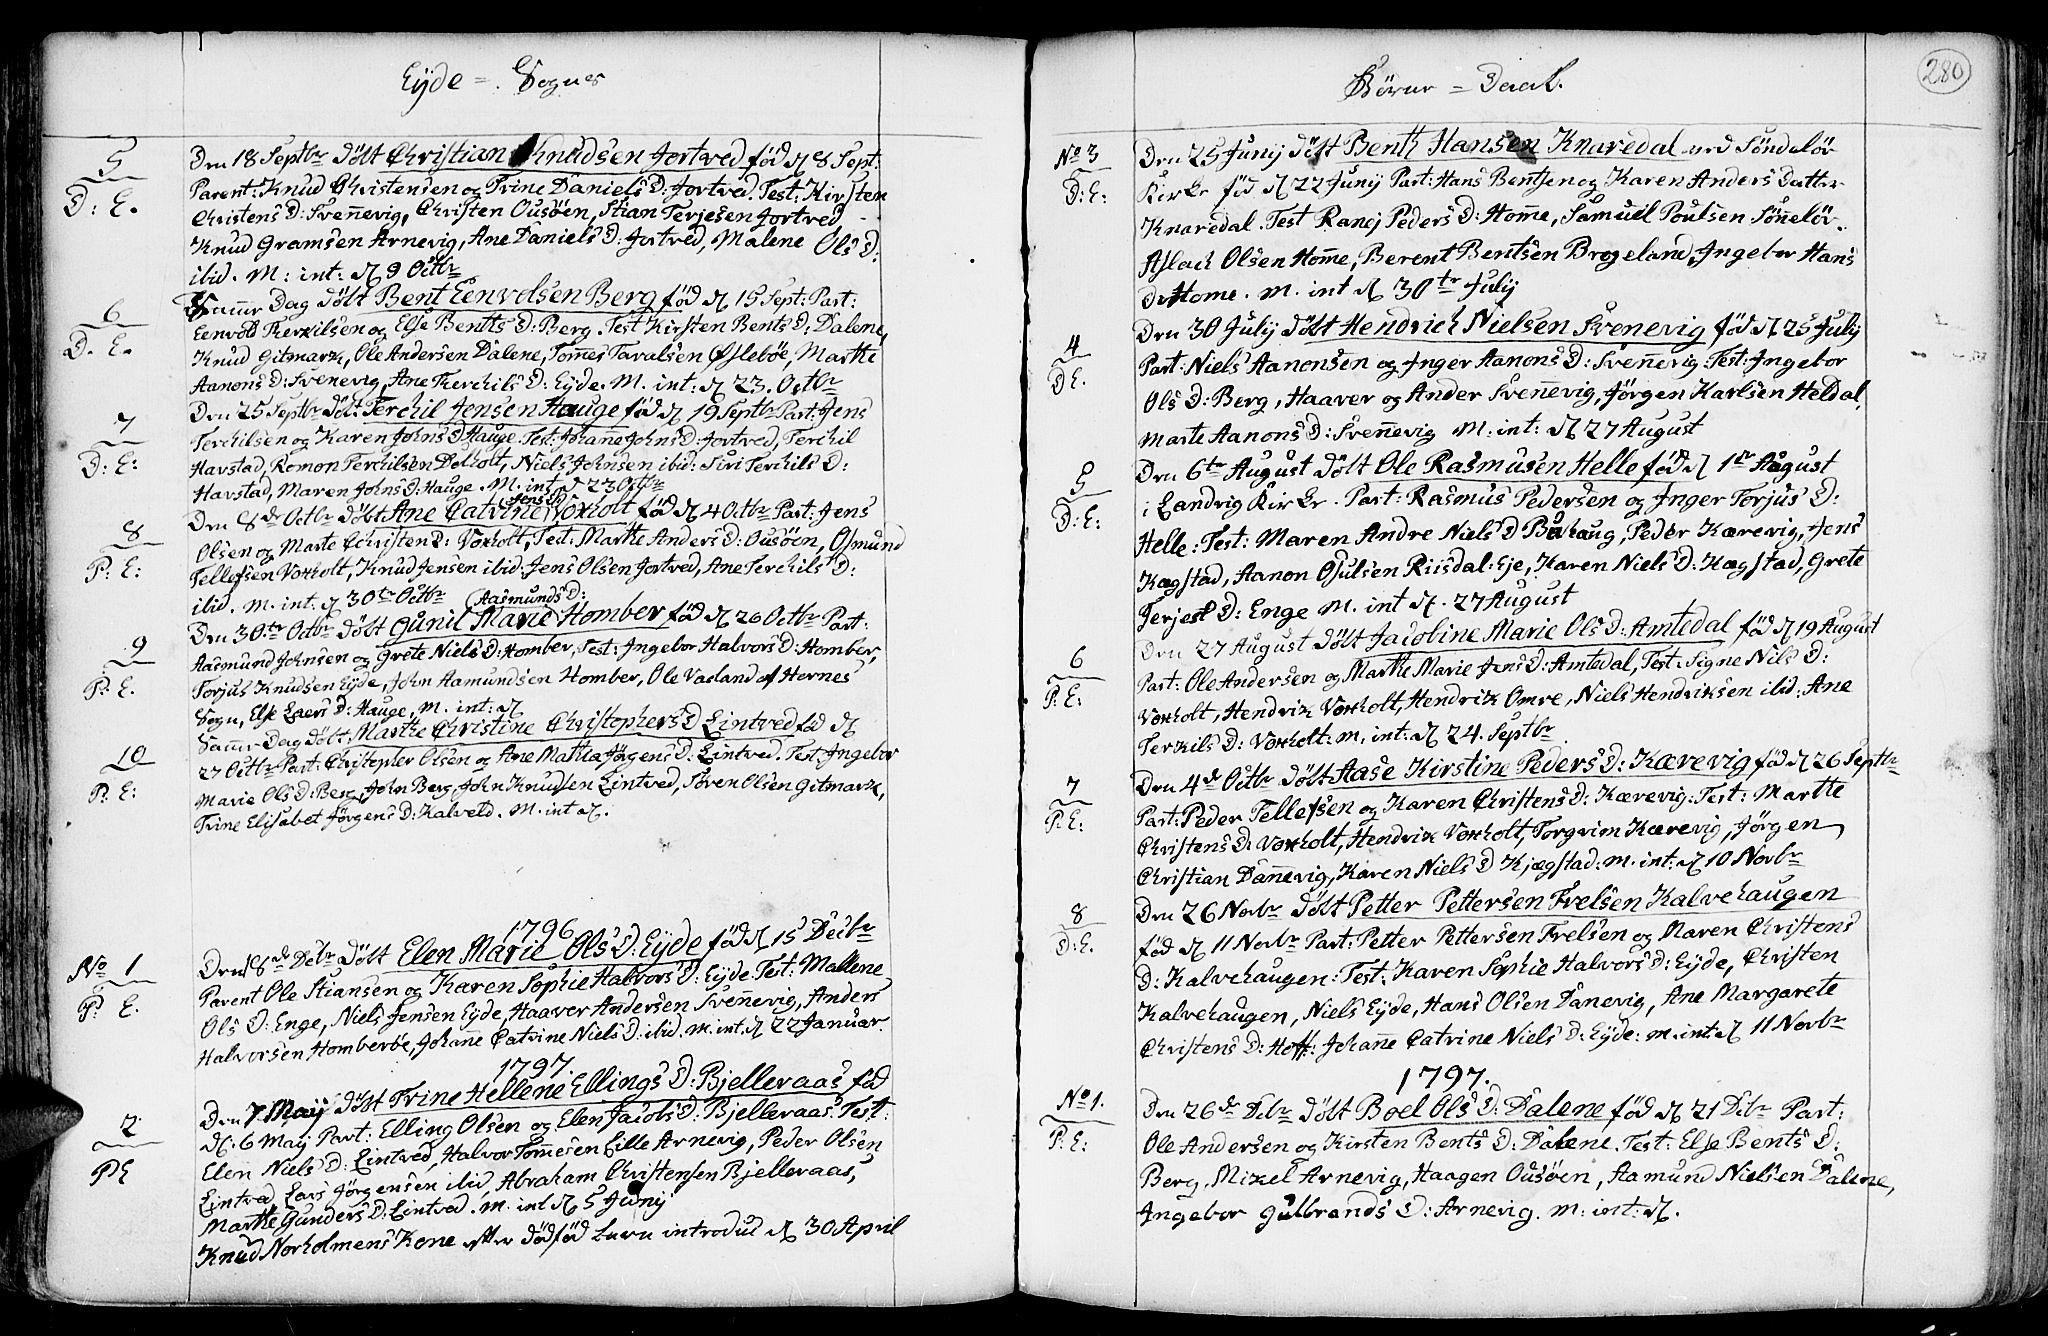 Eyde = Sogns
5
D: E.
Den 18 Septbr Döbt Christian Knudsen Jortved föd d 8 Sept:
Parent: Knud Christensen og Trine Daniels D: Jortved. Test: Kirsten
Christens D: Svennevig, Christen Ousöen, Stian Terjesen Jortved
Knud Gramsen Arnevig, Ane Daniels D: Jortved, Malene Ols D:
ibid. M: int: d 9 Octbr
6
D. E.
Samme Dag döbt Bent Eenvoldsen Berg föd d 15 Sept: Part:
Eenvold Terkilsen og Else Bentts D: Berg. Test Kirsten Bents D: Dalene,
Knud Gitmark, Ole Andersen Dalene, Tommes Tavalsen Ösleböe, Marthe
Aanons D: Svenevig, Ane Therchils D: Eyde. M. int: d 23. Octbr
7
D: E:
Den 25 Septbr döbt Terchil Jensen Hauge föd d 19 Septbr Part: Jens
Terchilsen og Karen Johns D Hauge. Test: Johanne Johns D: Jortved, Terchil
Havstad, Romon Terchilsen Dolholt, Niels Johnsen ibid: Siri Terchils D:
Havstad, Maren Johns D: Hauge. M. int d 23 Octbr
8
P: E:
Den 8de Octbr döbt Ane Catrine (Jens D:) Voxholt föd d 4 Octbr Part: Jens
Olsen og Marte Christen D: Voxholt, Test: Marthe Anders D: Ousöen, Osmund
Tellefsen Voxholt, Knud Jensen ibid: Jens Olsen Jortved, Ane Terchils D:
ibid. M. int: d 30te Octbr
9
P: E.
Den 30te Octbr döbt Gunil Marie (Aasmunds D:) Homber föd d 26 Octbr Part:
Aasmund Johnsen og Grete Niels D: Homber, Test: Ingebor Halvors D: Homber,
Torjus Knudsen Eyde, John Aamundsen Homber, Ole Vaaland af Hernes
Sogn, Else Laers D: Hauge, M. int: d
10
P: E:
Samme Dag döbt, Marthe Christine Christophers D Lintved föd d
27 Octbr Part: Christopher Olsen og Ane Mathia Jörgens D: Lintved. Test: Ingebor
Marie Ols D: Berg, John Berg, John Knudsen Lintved, Sören Olsen Gitmark,
Trine Elisabet Jörgens D: Kalveld. M. int d.
1796
No 1
P: E.
Den 18de Debr döbt Elen Marie Ols D: Eyde föd d 15 Decbr
Parent Ole Stiansen og Karen Sophie Halvors D: Eyde. Test: Mallene
Ols D: Enge, Niels Jensen Eyde, Haaver Andersen Svennevig, Anders
Halvorsen Homberbö, Johane Catrine Niels D: ibid. M. int. d 22 Januar.
1797.
2
P E
Den 7 Maij döbt Trine Hellene Ellings D: Bjelleraas föd
d: 6 Maij Part: Elling Olsen og Elen Jacobs D: Bjelleraas. Test:
Elen Niels D: Lintved, Halvor Tommesen Lille Arnevig, Peder Olsen
Lintved Lars Jörgensen ibid Abraham Christensen Bjelleraas,
Marthe Gunders D: Lintved. M. int d 5 Junij
Knud Norholmens Kone efter dödföd barn introdud d 30 April
Börne = Daab.
280
No 3
D: E:
Den 25 Junij döbt Benth Hansen Knaredal ved Söndelöv
Kirke föd d 22 Junij Part: Hans Bentsen og Karen Anders Datter
Knaredal. Test Ranej Peders D: Homme, Samuel Poulsen Sönnelöv.
Aslach Olsen Homme, Berent Bentsen Brogeland, Ingebor Hans
D: Home. M. int d 30te Julij
4
D E.
Den 30 Julij döbt Hendrich Nielsen Svenevig föd d 25 Julij
Part: Niels Aanonsen og Inger Aanons D: Svennevig: Test: Ingebor
Ols D: Berg, Haaver og Ander Svennevig, Jörgen Karlsen Heldal,
Marte Aanons D: Svennevig M: int: d 27 August
5
D: E:
Den 6te August döbt Ole Rasmusen Helle föd d 1te August
i Landvig Kirke. Part: Rasmus Pedersen og Inger Torjus D:
Helle: Test: Maren Andre Niels D Buxhaug, Peder Kærevig, Jens
Kægstad, Aanon Osulsen Riisdal: Eje, Karen Niels D: Kægstad, Grete
Terjes D: Enge M. int d. 27 August
6
P: E:
Den 27 August döbt Jacobine Marie Ols D: Amtedal föd d 19 August
Part: Ole Andersen og Marthe Marie Jens D: Amtedal, Test: Signe Nils D:
Voxholt, Hendrik Voxholt, Hendrik Omre, Niels Hendriksen ibid: Ane
Terkils D: Voxholt: M. int: d 24. Septbr
7
P: E:
Den 4de Octbr döbt Aase Kirstine Peders D: Kærevig föd d 26 Septbr
Part: Peder Tellefsen og Karen Christens D: Kærevig: Test: Marthe
Christens D: Voxholt, Hendrik Voxholt, Torgrim Kærevig, Jörgen
Christian Dannevig, Karen Niels D Kjægstad: M. int: d 10 Novbr
8
D: E.
Den 26 Novbr döbt Petter Pettersen Frelsen Kalvehaugen
föd d 11 Novbr Part: Petter Pettersen Frelsen og Maren Christens
D: Kalvehaugen: Test: Karen Sophie Halvors D: Eyde, Christen
Kalvehaugen, Niels Eyde, Hans Olsen Danevig, Ane Margarete
Christens D: Hoff: Johanne Catrine Niels D: Eyde: M. int: d 11 Novbr
1797.
No 1.
P: E:
Den 26de Debr döbt Boel Ols D: Dalene föd d 21 Debr Part:
Ole Andersen og Kirsten Bents D: Dalene. Test: Else Bents D:
Berg, Mikel Arnevig, Haagen Ousöen, Aamund Nielsen Dalene,
Ingebor Gulbrands D: Arnevig. M: int: d.